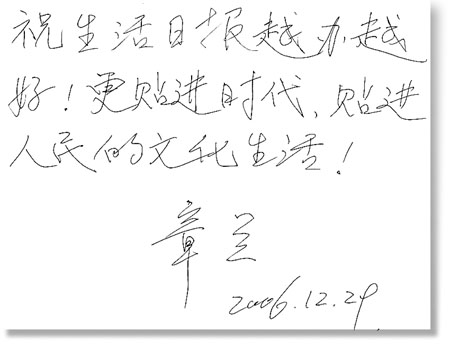 祝生活日报越办越
好！更贴进时代、贴进
人民的文化生活！
章兰
2006.12.29